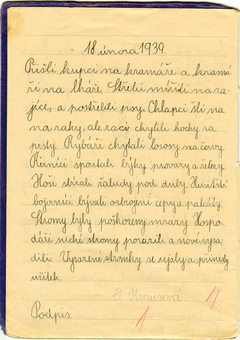 18 února 1939.
Přišli kupci na kramáře a kramá-
ři na lháře. Střelci mířili na za-
jíce, a postřelili psy. Chlapci šli na
na raky, ale raci chytili hochy za
prsty. Rybáři chytali lososy na červy.
Řezníci spoutali býky provazy a řetězy.
Hoši sbírali žaludy pod duby. Husitští
bojovníci bývali ozbrojeni cepy a palcáty.
Stromy byly poškozeny mrazy. Hospo-
dáři suché stromy porazili a nové vysa-
dili. Vysazené stromky se ujaly a přinesly
užitek.
J. Krausová.
1
Podpis
1